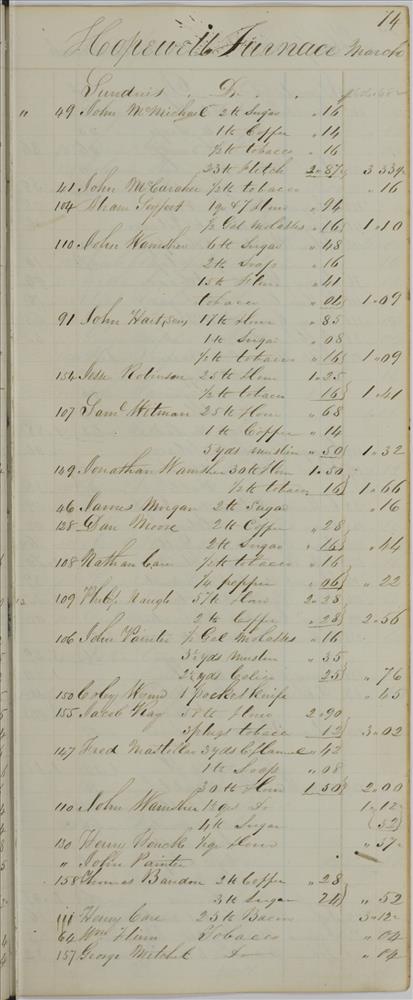 74
Hopewell Furnace March
Sundries Dr
" 49 John McMichael 2 lb Sugar " 16
1 lb Coffee " 14
½ lb tobacco " 16
23 lb Flitch 2.87½ 3 33½
41 John McCaraher ½ lb tobacco " 16
104 1 qr & 7 Flour " 94
½ Gal Molasses " 16 1.10
110 John Wamsher 6 lb Sugar " 48
2 lb Soap " 16
15 lb Flour " 41
tobacco " 04 1.09
91 John Hart, Sen 17 lb Flour " 85
1 lb Sugar " 08
½ lb tobacco " 16 1.09
154 Jesse Robinson 25 lb Flour 1.25
½ lb tobacco 16 1.41
107 Saml Witman 25 lb Flour " 68
1 lb Coffee " 14
5 yds muslin " 50 1.32
149 Jonathan Wamsher 30 lb Flour 1.50
½ lb tobacco 16 1.66
46 James Morgan 2 lb Sugar " 16
128 Dan Moore 2 lb Coffee " 28
2 lb Sugar " 16 " 44
108 Nathan Care ½ lb tobacco " 16
¼ pepper " 06 " 22
109 Philip Naugle 57 lb Flour 2.28
2 lb Coffee " 28 2.56
106 John Painter ½ Gal Molasses " 16
3½ yds Muslin " 35
2½ yds Calico 25 " 76
150 Coley Wynn 1 pocket knife " 45
155 Jacob Kay 58 lb Flour 2.90
3 plugs tobacco 12 3.02
147 Fred Mastellar 3 yds C Flannel " 42
1 lb Soap " 08
30 lb Flour 1.50 2.00
110 John Wamsher Do 1.12
4 lb Sugar (32)
130 Henry Houck ½ qr Flour " 37
" John Painter
158 Thomas Bandon 2 lb Coffee " 28
3 lb Sugar 24 " 52
111 Henry Care 25 lb Bacon 3.12
64 Wm Flinn Tobacco " 04
157 George Mitchel Do " 04